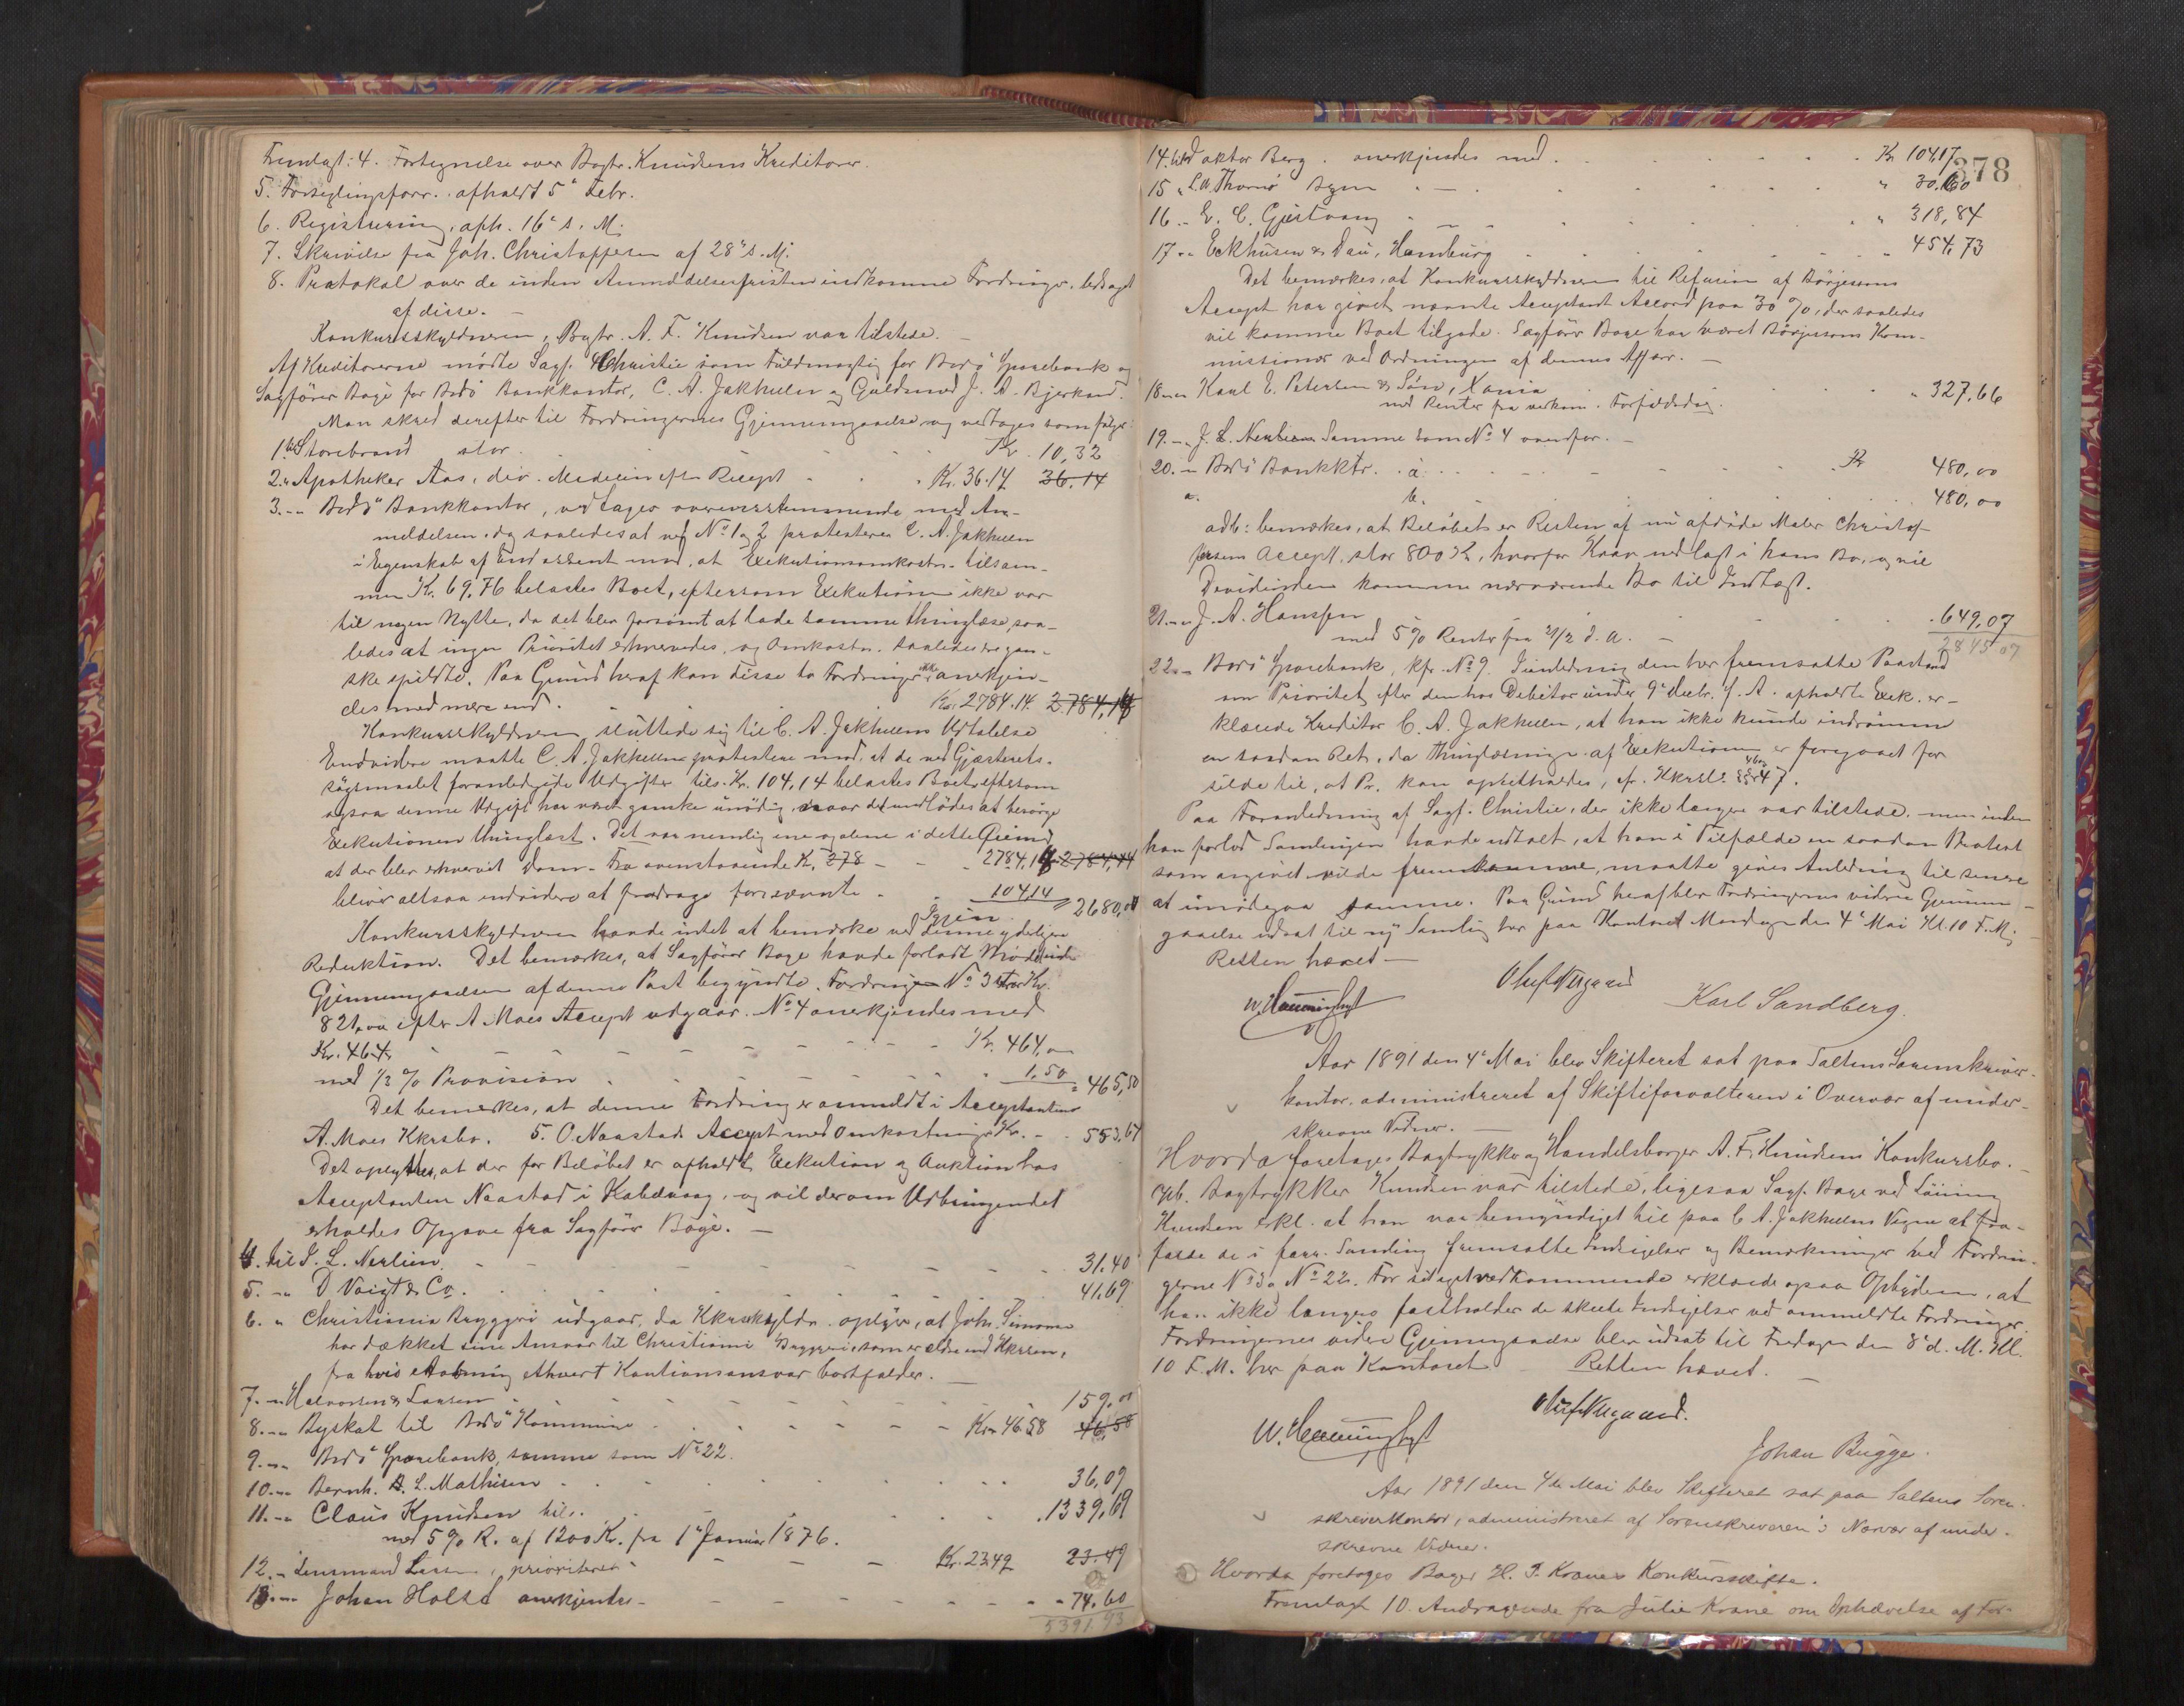 Fremlagt: 4. Fortegnelse over Bogtr. Knudsens Kreditorer.
5. Forseglingsforr. afholdt 5' Febr.
6. Registrering, afh. 16' s. M.
7. Skrivelse fra Joh. Christoffersen af 28' s. M.
8. Protokol over de inden Anmeldelsesfristen indkomne Fordringer, ledsaget
af disse. —
Konkursskyldneren, Bogtr. A. F. Knudsen var tilstede. —
Af Kreditorerne mødte Sagf. Christie som Fuldmægtig for Bodø Sparebank og
Sagfører Bage for Bodø Bankkontor, C. A. Jakhelln og Guldsmed J. A. Bjerkand.
Man skred derefter til Fordringernes Gjennemgaaelse og vedtoges som følger:
1. til Storebrand stor. Kr. 10,32
2. " Apotheker Aas, div. Medicin efter Recept Kr. 36.14 36.14
3. - " Bodø Bankkontor, vedtages overensstemmende med An-
meldelsen, dog saaledes at ved No 1 og 2 protesterer C. A. Jakhelln
i Egenskab af Endossent mod, at Exekutionsomkostn. tilsam-
men Kr. 69,76 belastes Boet, eftersom Exekutionen ikke var
til nogen Nytte, da det blev forsømt at lade samme thinglæse, saa-
ledes at ingen Prioritet erhvervedes, og Omkostn. saaledes ere gan-
ske spildte. Paa Grund heraf kan disse to Fordringer ikke anerkjen-
des med mere end Kr. 2784.14. 2784,14
Konkursskyldneren sluttede sig til C. A. Jakhellns Udtalelse
Endvidere maatte C. A. Jakhelln protestere mod, at de ved Gjæsterets-
søgsmaalet foranledigede Udgifter tils. Kr. 104,14 belastes Boet, eftersom
ogsaa denne Udgift har været ganske unødig, naar det undlodes at besørge
Exekutionen thinglæst. Det var nemlig ene og alene i dette Øiemed,
at der blev erhvervet Dom. Fra ovenstaaende Kr. 278 - - 2784,14 2784,14
bliver altsaa endvidere at fradrage forrnævnte - 104.14 = 2680,00
Konkursskyldneren havde intet at bemærke ved denne yderligere
Reduktion. Det bemærkes, at Sagfører Bage havde forladt Mødet inden
Gjennemgaaelsen af denne Post begyndte. Fordringen No 3 stor Kr.
821,00 efter A. Moes Accept udgaar. No 4 anerkjendes med
Kr. 464 - - - - Kr. 464,00
med 1/3 % Provision 1.50 = 465,50
Det bemærkes, at denne Fordring er anmeldt i Acceptantens
A. Moes Kkrsbo. 5. O. Naastads Accept med Omkostninger Kr. - 553,64
Det oplystes, at der for Beløbet er afholdt Exekution og Auktion hos
Acceptanten Naastad i Kabelvaag, og vil derom Udbringendet
erholdes Opgave fra Sagfører Bage. —
4. til J. L. Nerlien 31.40
5. - " D Voigt & Co. 41,69
6. " Christiania Bryggeri udgaar, da Kkrsskyldn. oplyser, at Joh. Simonsen
har dækket sine Ansvar til Christiania Bryggeri, som er ældre end Kkrsen,
fra hvis Aabning ethvert Kautionsansvar bortfalder. —
7. - " Halvorsen & Larsen 159,00
8. - " Byskat til Bodø Kommune Kr. 46.58 46,58
9. - " Bodø Sparebank, samme som No 22.
10. - " Bernh. L. Mathisen 36,09
11. - " Claus Knudsen tils. 1339,69
med 5 % R. af 1200 Kr. fra 1' Januar 1876.
12. - Lensmand prioriteret Kr. 23.49 23.49
13. - " Johan Holst anerkjendes - 74.60
5391.93
378
14. til Doktor Berg anerkjendes med Kr 104,17
15 " L. A. Thornø Agn - " 30,60
16 - " E. C. Gjestvang " 318,84
17 - " Eckhusen & Dau, Hamburg " 454,73
Det bemærkes, at Konkursskyldneren til Refusion af Børjesons
Accept har givet nævnte Acceptant Accord paa 30 %, der saaledes
vil komme Boet tilgode. Sagfører Bage har været Børjesons Kom-
missionær ved Ordningen af dennes Affær. —
18 - " Karl E. Petersen & Søn, Xania " 327,66
med Renter fra vedkom. Forfaldsdag.
19. - " J. L. Nerlien Samme som No 4 ovenfor. —
20. - " Bodø Bankktr. a. Kr 480,00
" b. 480,00
ad b: bemærkes, at Beløbet er Resten af nu afdøde Maler Christof-
fersens Accept, stor 800 Kr, hvorfor Krav nedlagt i hans Bo, og vil
Dividenden komme nærværende Bo til Indtægt.
21. - " J. A. Hansen 649,07
med 5 % Renter fra 2/2 d. A. — 2845 07
22. - " Bodø Sparebank, kfr. No 9. I Anledning den her fremsatte Paastand
om Prioritet efter den hos Debitor under 9' Decbr. f. A. afholdte Exek. er-
klærede Kreditor C. A. Jakhelln, at han ikke kunde indrømme
en saadan Ret, da Thinglæsningen af Exekutionen er foregaaet for
silde til, at Pr. kan opretholdes, cfr. Kkrsl. §§ 46 og 47.
Paa Foranledning af Sagf. Christie, der ikke længere var tilstede, men inden
han forlod Samlingen havde udtalt, at han i Tilfælde en saadan Protest
som angivet vilde fremkomme, maatte gives Anledning til senere
at imødegaa samme. Paa Grund heraf blev Fordringernes videre Gjennem-
gaaelse udsat til ny Samling her paa Kontoret Mandagen den 4' Mai Kl. 10 F. M.
Retten hævet —
Karl Sandberg.
Aar 1891 den 4' Mai blev Skifteret sat paa Saltens Sorenskriver-
kontor, administreret af Skifteforvalteren i Overvær af under-
skrevne Vidner. —
Hvorda foretoges Bogtrykker og Handelsborger A. F. Knudsens Konkursbo. —
Opb. Bogtrykker Knudsen var tilstede, ligesaa Sagf. Bage ved
Knudsen erkl. at han var bemyndiget til paa C A. Jakhellns Vegne at fra-
falde de i forr. Samling fremsatte Indsigelser og Bemærkninger ved Fordrin-
gerne No 3 og No 22. For sit eget vedkommende erklærede ogsaa Opbyderen, at
han ikke længere fastholder de skeete Indsigelser ved anmeldte Fordringer.
Fordringernes videre Gjennemgaaelse blev udsat til Fredagen den 8' d. M. Kl.
10 F. M. her paa Kontoret. Retten hævet. —
Johan Bugge.
Aar 1891 den 4de Mai blev Skifteret sat paa Saltens Soren-
skriverkontor, administreret af Sorenskriveren i Nærvær af under-
skrevne Vidner.
Hvorda foretoges Bager H. P. Kranes Konkursskifte.
Fremlagt 10. Andragende fra Julie Krane om Ophævelse af For-